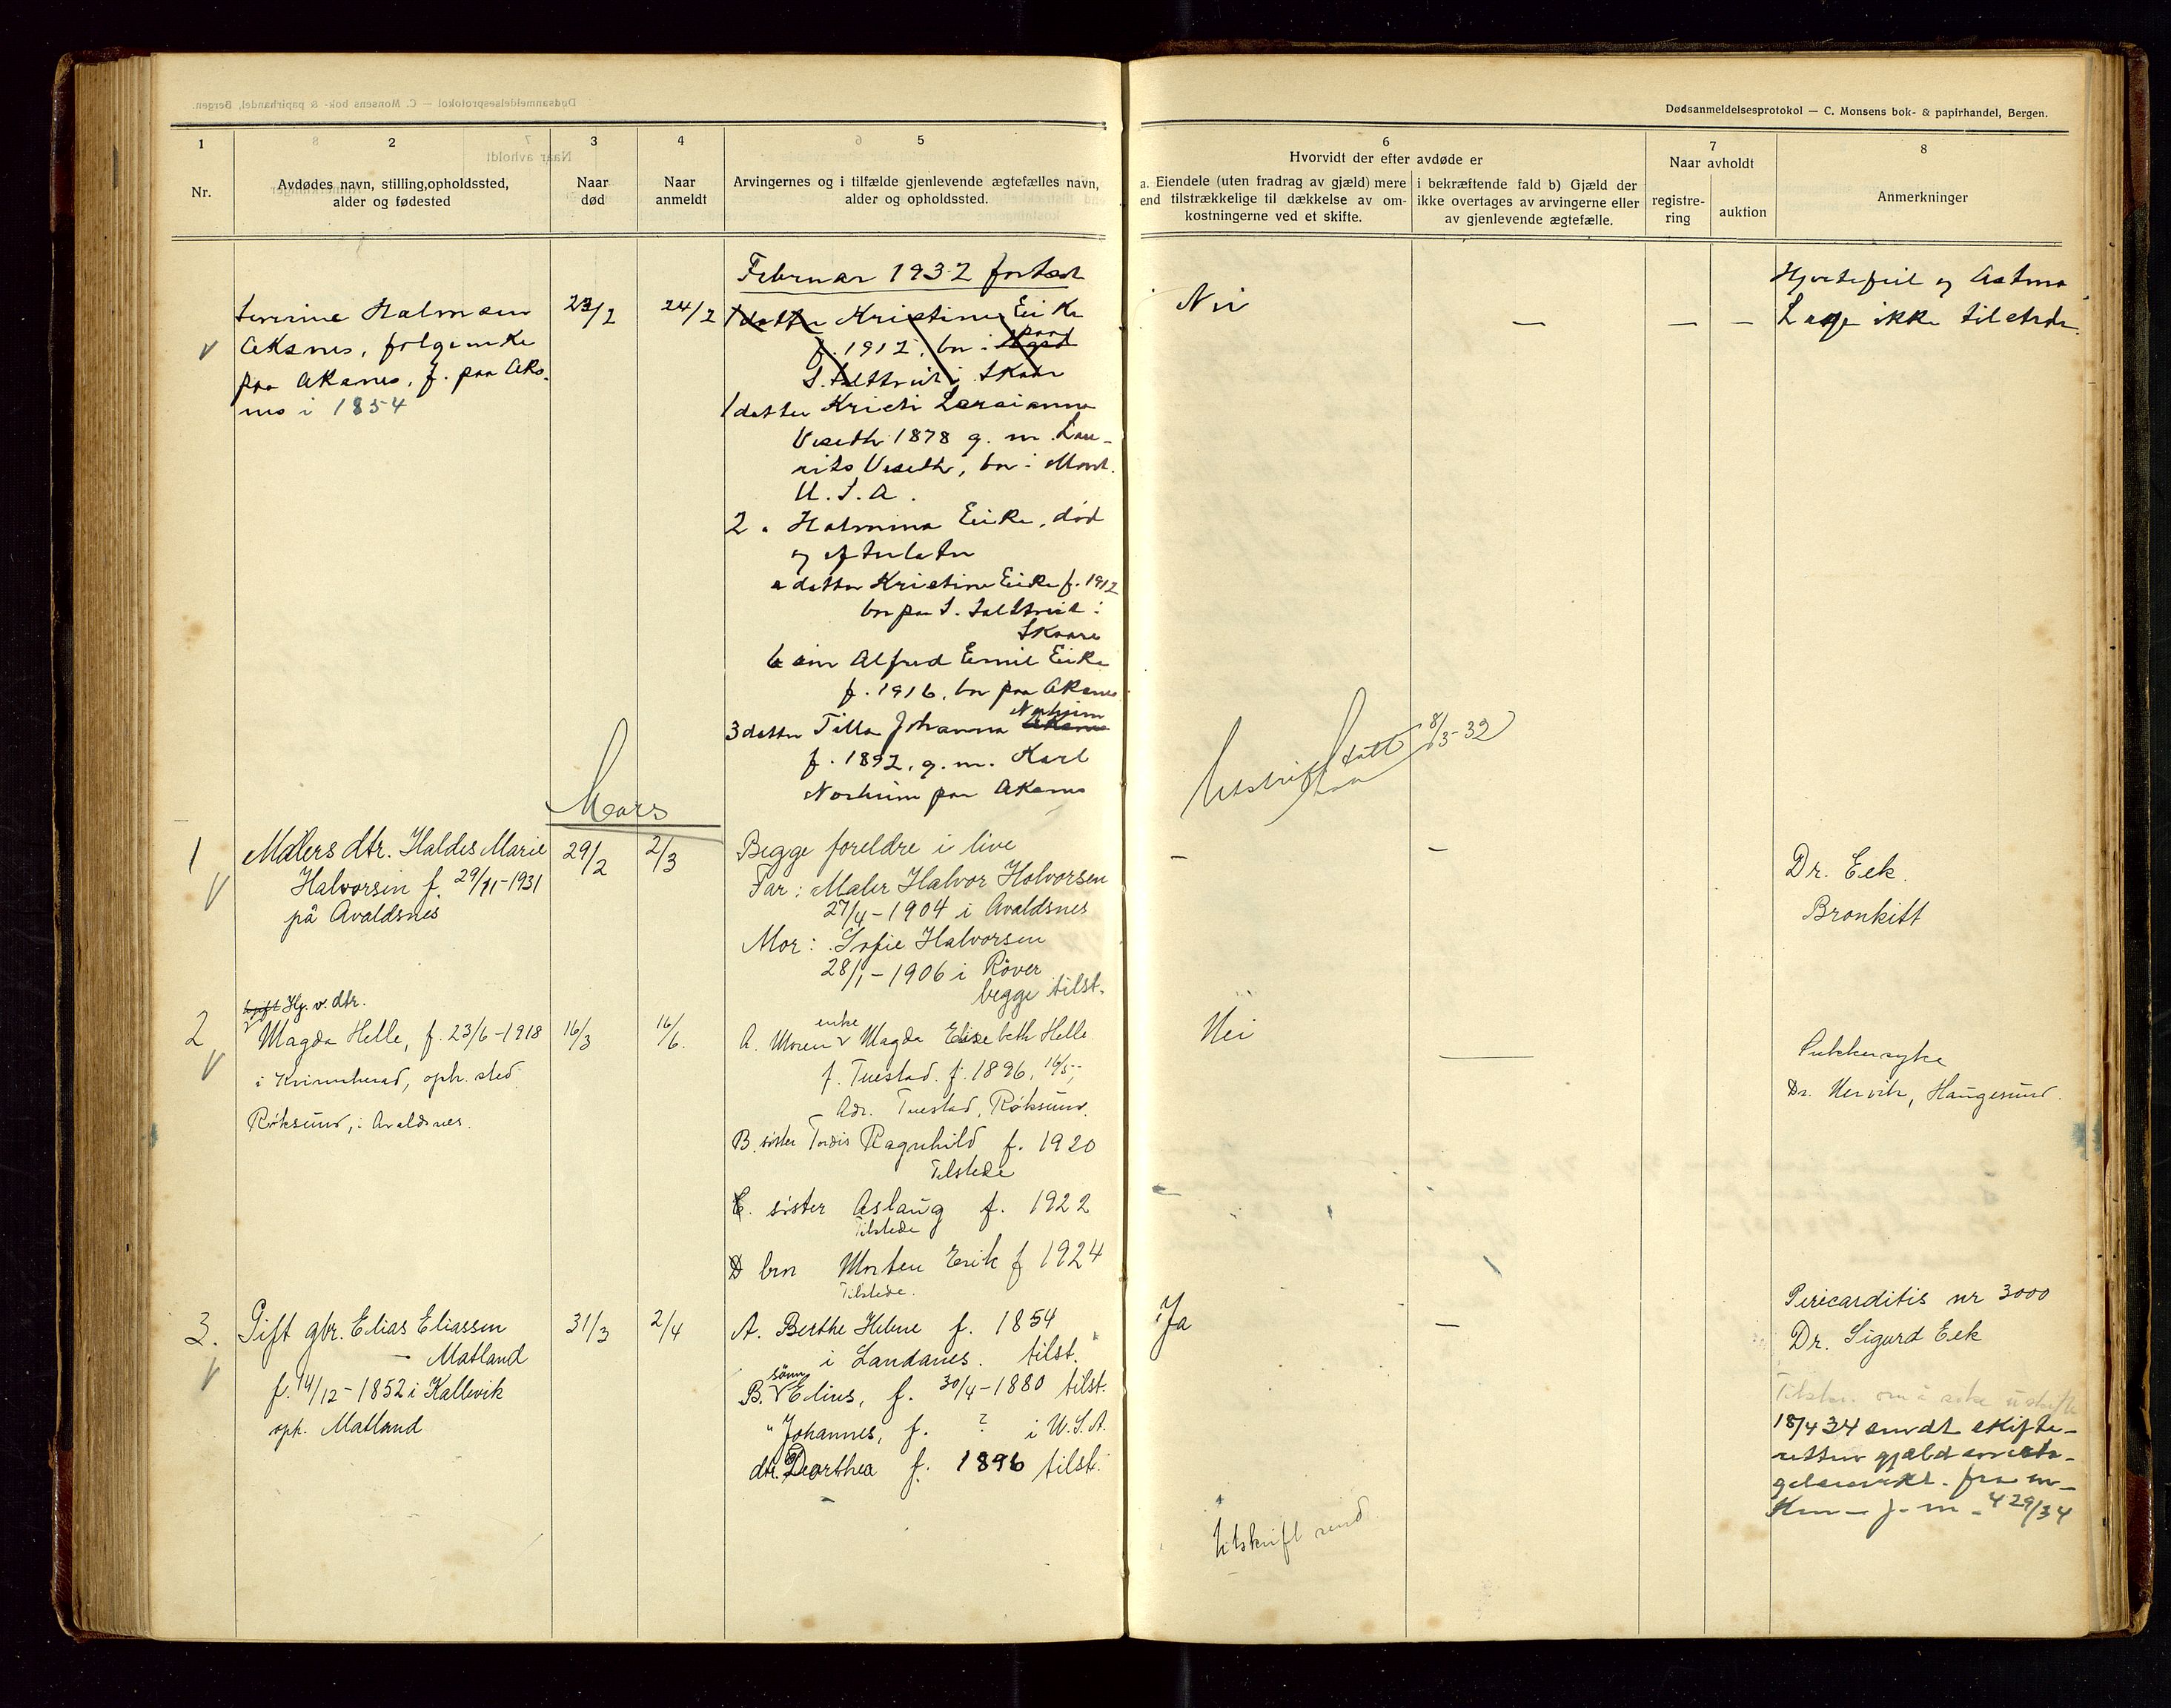 Dødsanmeldelsesprotokol — C. Monsens bok- & papirhandel, Bergen.
1
Nr.
2
Avdødes navn, stilling, opholdssted,
alder og fødested
3
Naar
død
4
Naar
anmeldt
5
Arvingernes og i tilfælde gjenlevende ægtefælles navn,
alder og opholdssted.
6
Hvorvidt der efter avdøde er
a. Eiendele (uten fradrag av gjæld) mere
end tilstrækkelige til dækkelse av om-
kostningerne ved et skifte.
i bekræftende fald b) Gjæld der
ikke overtages av arvingerne eller
av gjenlevende ægtefælle.
7
Naar avholdt
registre-
ring
auktion
8
Anmerkninger
Februar 1932 fortsat
Halmsen
Aksnes, følgeenke
paa Aksnes, f. paa Aks-
nes i 1854
23/2
24/2
1 datter Kristine Eike
f. 1912, bor i
S. i Skaare
1 datter Kristi
Viseth 1878 g. m. Lau-
rits Viseth, bor i Mont.
U. S. A.
2 " Halmina Eike, død
og efterlater
a datter Kristine Eike f. 1912
bor paa S. i
Skaare
b søn Alfred Emil Eike
f. 1916, bor paa Aksnes
3 datter Tilla Johanna Norheim
f. 1892, g. m. Karl
Norheim paa Aksnes
Nei
—
— —
Hjertefeil og Astma
Læge ikke tilstede.
Utskrift 8/3-32
Mars
1
Malers dtr. Haldis Marie
Halvorsen f. 29/11-1931
på Avaldsnes
29/2
2/3
Begge foreldre i live
Far: Maler Halvor Halvorsen
27/4-1904 i Avaldsnes
Mor: Sofie Halvorsen
28/1-1906 i Røver
begge tilst.
-
-
Dr. Eek.
Bronkitt
2
Hj. v. dtr.
Magda Helle, f. 23/6-1918
i Kvinnherad, oph. sted
Røksund, i Avaldsnes.
16/3
16/6.
enke
A. Moren Magda Elisebeth Helle
f. Tuestad. f. 1896, 16/5
Adr. Tuestad, Røksund.
B. søster Tordis Ragnhild f. 1920
Tilstede
C. søster Aslaug f. 1922
Tilstede
D bror Morten Erik f 1924
Tilstede.
Nei
—
Sukkersyke
Dr. Hervik, Haugesund.
3.
Gift gbr. Elias Eliassen
— Matland
f. 14/12-1852 i Kallevik
oph. Matland
31/3
2/4
A. Berthe Helene f. 1854
i Landanes. tilst.
sönn
B. Elius, f. 30/4-1880 tilst.
" Johannes, f. ? i U.S.A.
dtr. Dorthea f. 1896 tilst.
Ja
—
Pericarditis nr 3000
Dr. Sigurd Eek
18/4 34 sendt skifte-
retten
fra en-
4 29/34
Utskrift send